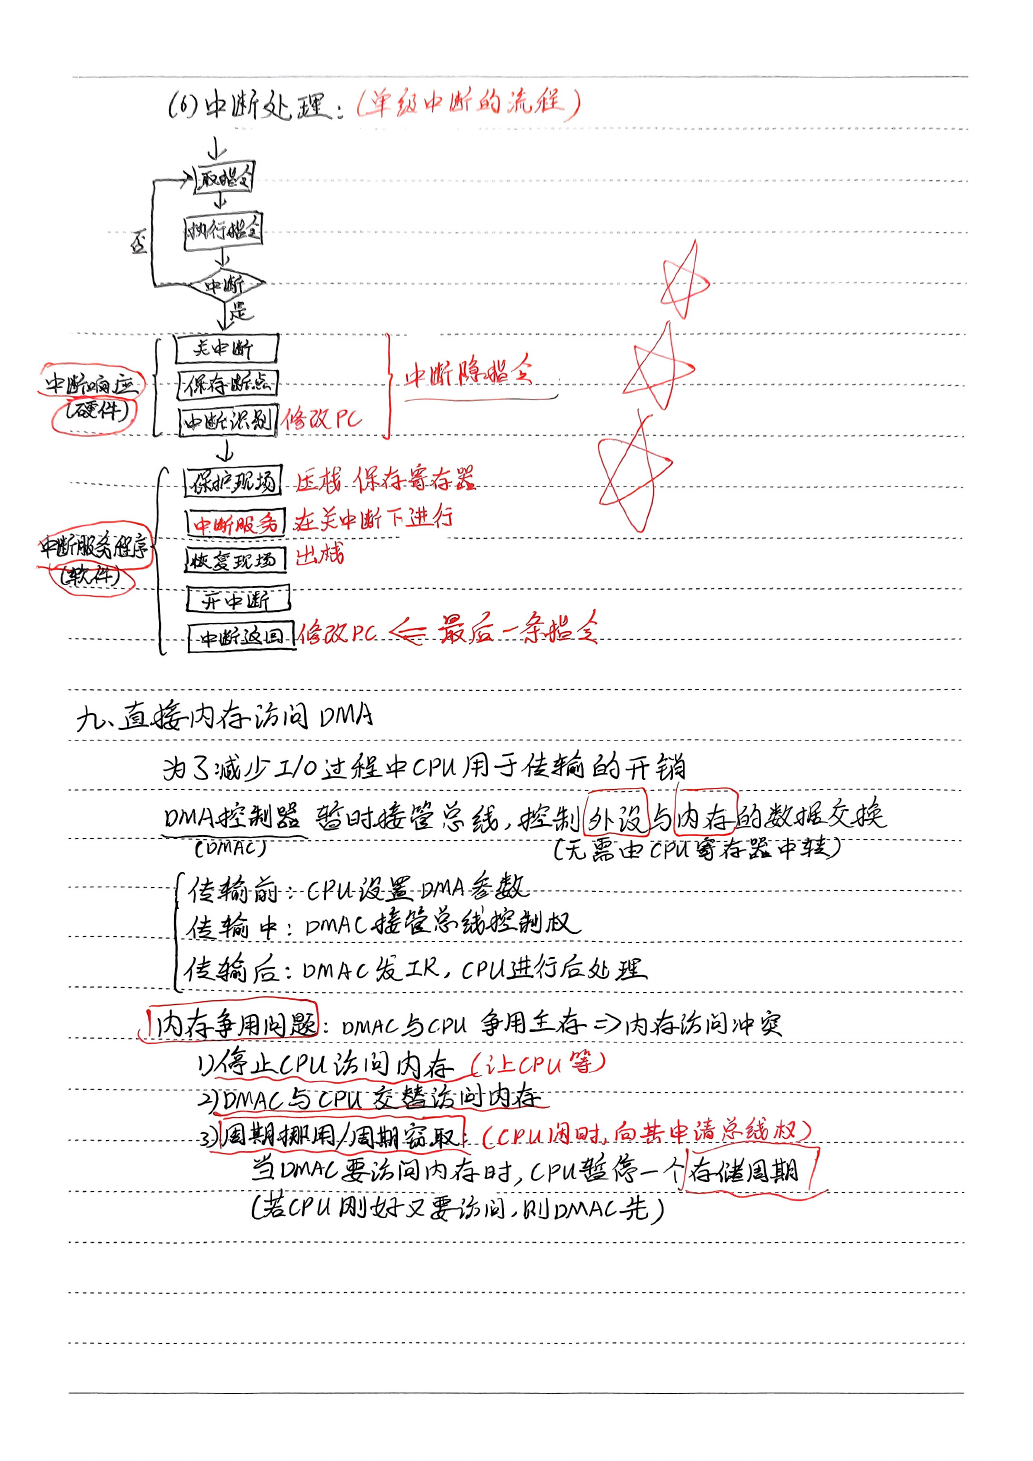 (6) 中断处理：(单级中断的流程)
取指令
执行指令
否
中断
是
关中断
中断响应
(硬件)
保存断点
中断隐指令
中断识别 修改PC
保护现场 压栈 保存寄存器
中断服务 在关中断下进行
中断服务程序
(软件)
恢复现场 出栈
开中断
中断返回 修改PC ⇐ 最后一条指令
九、直接内存访问 DMA
为了减少 I/O 过程中CPU用于传输的开销
DMA控制器 暂时接管总线,控制外设与内存的数据交换
(DMAC) (无需由CPU寄存器中转)
传输前：CPU设置DMA参数
传输中：DMAC接管总线控制权
传输后：DMAC发IR, CPU进行后处理
内存争用问题：DMAC与CPU 争用主存⇒内存访问冲突
1) 停止CPU访问内存 (让CPU等)
2) DMAC与CPU 交替访问内存
3) 周期挪用/周期窃取：(CPU闲时,向其申请总线权)
当DMAC要访问内存时, CPU暂停一个存储周期
(若CPU刚好又要访问,则DMAC先)